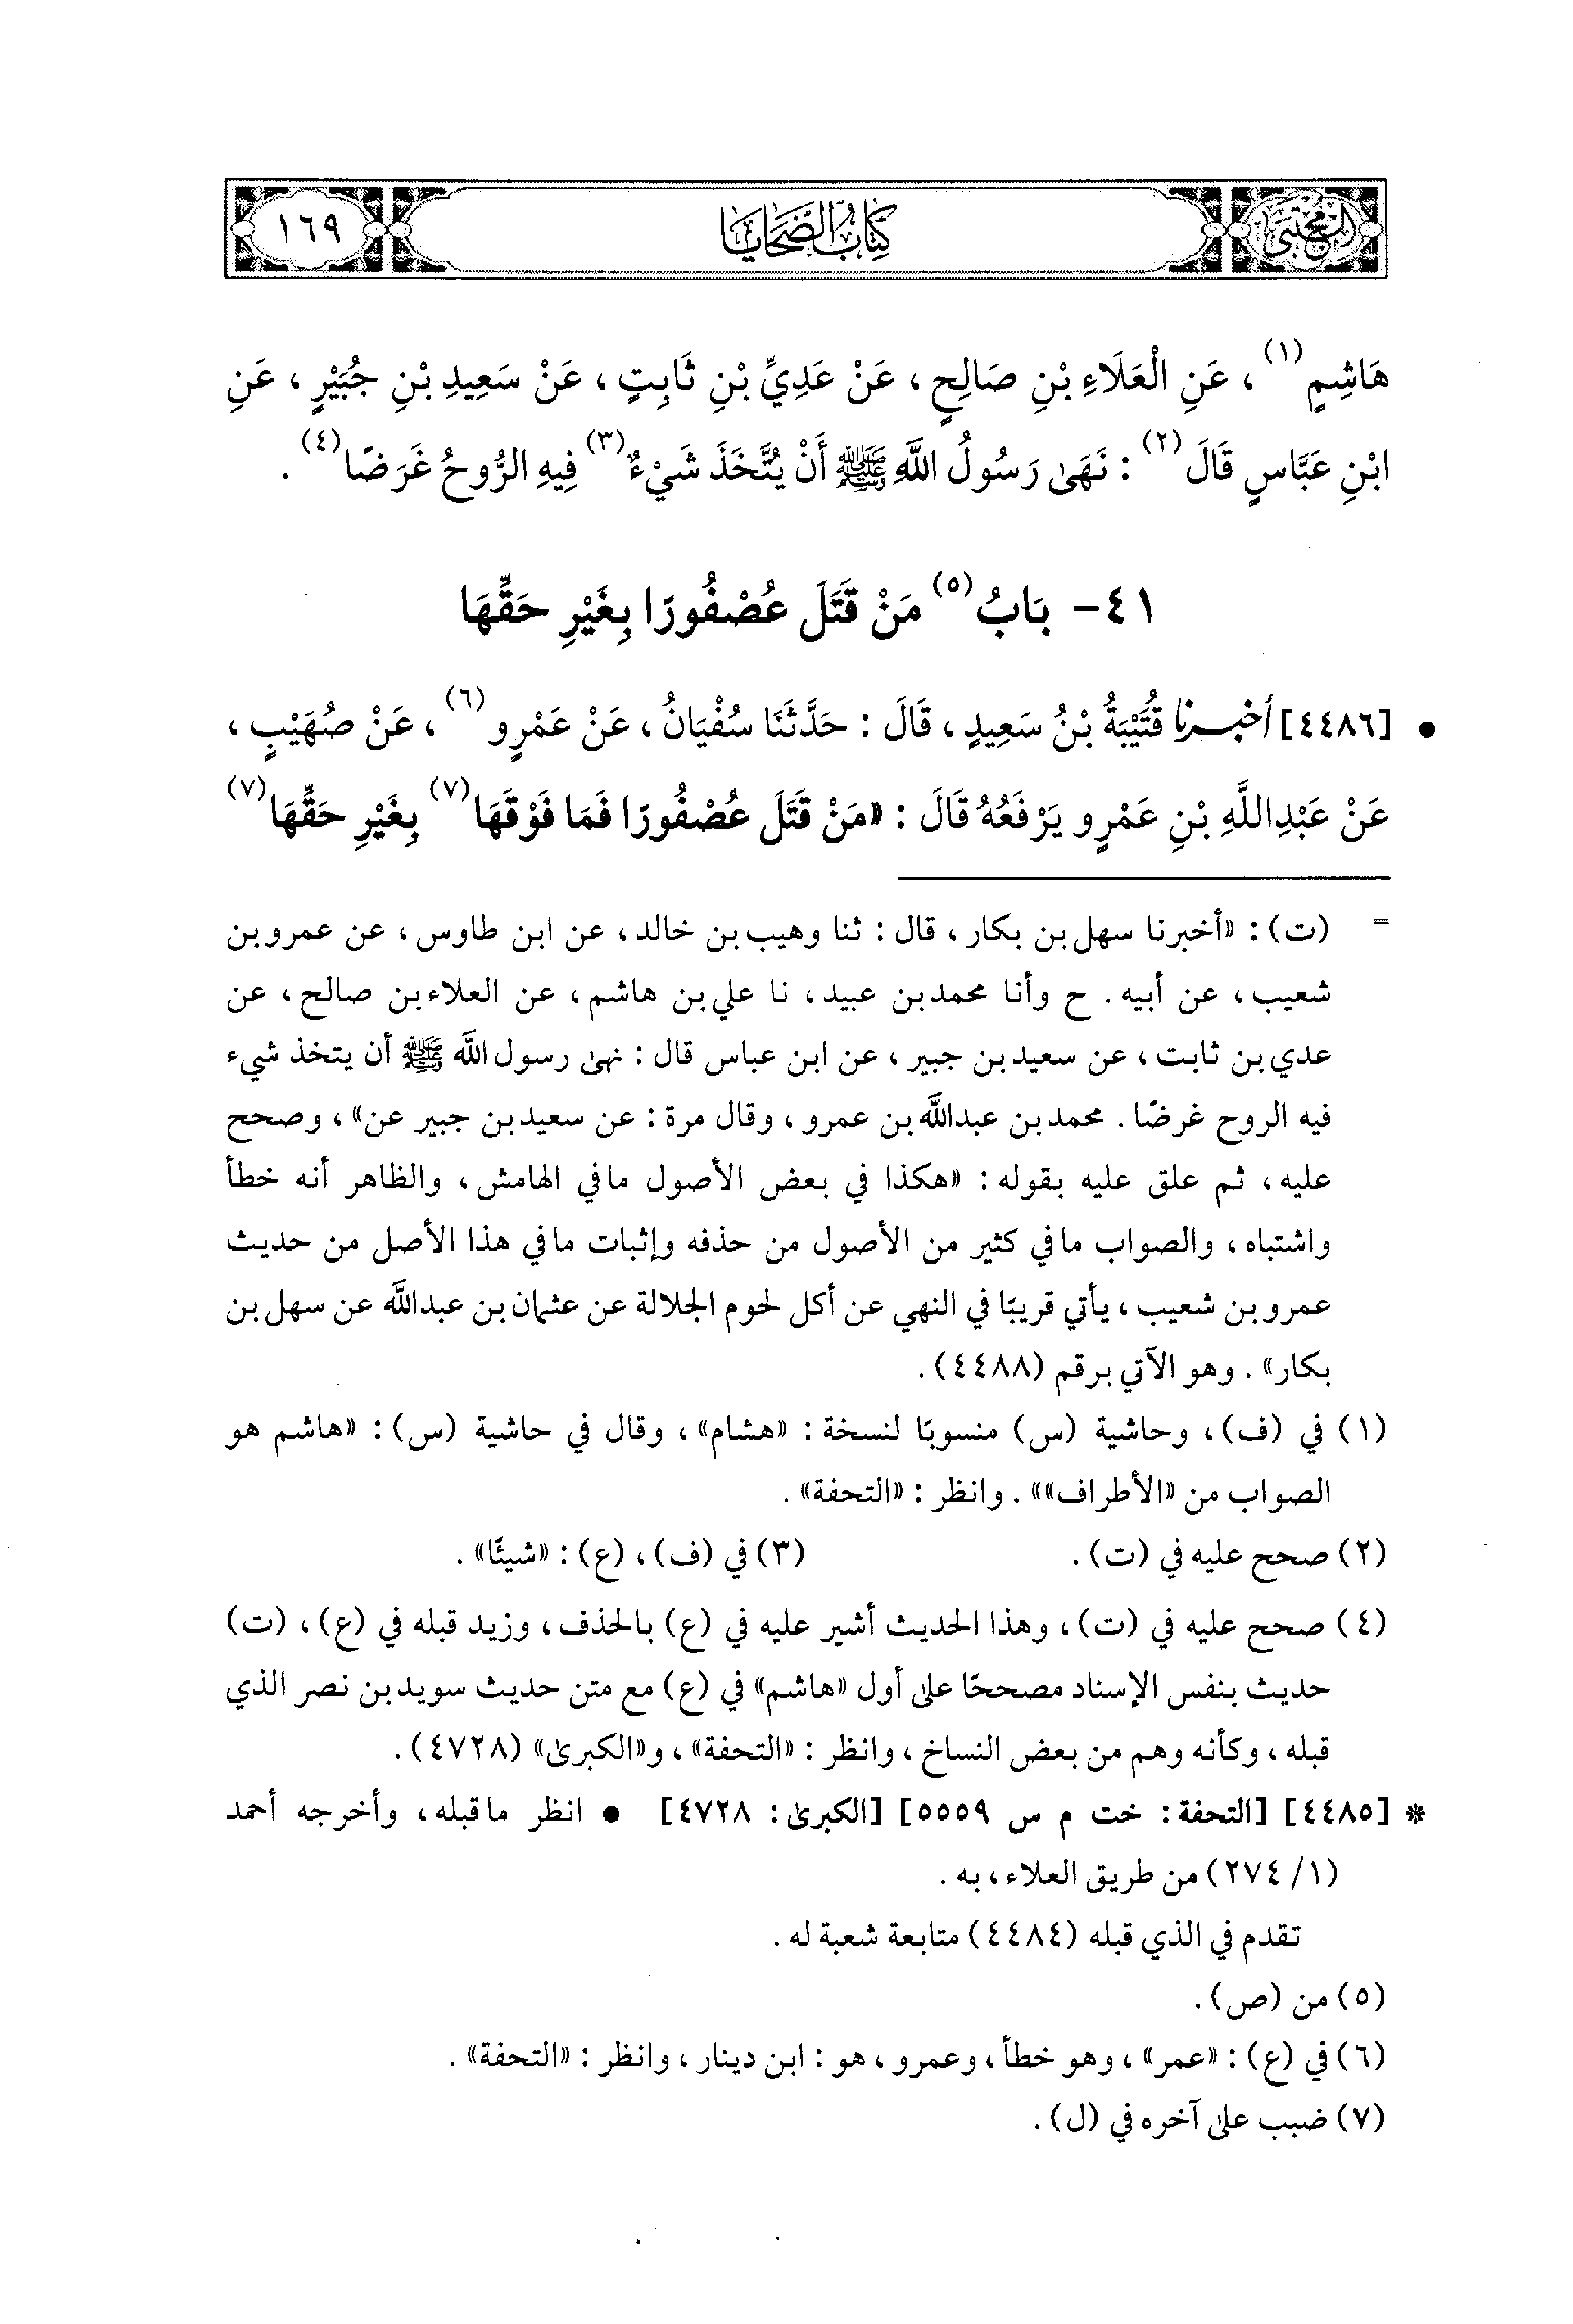 المجتبى
كتاب الضحايا
١٦٩
هَاشِمٍ(١)، عَنِ الْعَلَاءِ بْنِ صَالِحٍ، عَنْ عَدِيِّ بْنِ ثَابِتٍ، عَنْ سَعِيدِ بْنِ جُبَيْرٍ، عَنِ
ابْنِ عَبَّاسٍ قَالَ(٢): نَهَىٰ رَسُولُ اللَّهِ ﷺ أَنْ يُتَّخَذَ شَيْءٌ(٣) فِيهِ الرُّوحُ غَرَضًا(٤).
٤١- بَابُ(٥) مَنْ قَتَلَ عُصْفُورًا بِغَيْرِ حَقِّهَا
• [٤٤٨٦] أخبرنا قُتَيْبَةُ بْنُ سَعِيدٍ، قَالَ: حَدَّثَنَا سُفْيَانُ، عَنْ عَمْرٍو(٦)، عَنْ صُهَيْبٍ،
عَنْ عَبْدِاللَّهِ بْنِ عَمْرٍو يَرْفَعُهُ قَالَ: «مَنْ قَتَلَ عُصْفُورًا فَمَا فَوْقَهَا(٧) بِغَيْرِ حَقِّهَا(٧)
= (ت): «أخبرنا سهل بن بكار، قال: ثنا وهيب بن خالد، عن ابن طاوس، عن عمرو بن
شعيب، عن أبيه. ح وأنا محمد بن عبيد، نا علي بن هاشم، عن العلاء بن صالح، عن
عدي بن ثابت، عن سعيد بن جبير، عن ابن عباس قال: نهىٰ رسول اللَّه ﷺ أن يتخذ شيء
فيه الروح غرضًا. محمد بن عبداللَّه بن عمرو، وقال مرة: عن سعيد بن جبير عن»، وصحح
عليه، ثم علق عليه بقوله: «هكذا في بعض الأصول ما في الهامش، والظاهر أنه خطأ
واشتباه، والصواب ما في كثير من الأصول من حذفه وإثبات ما في هذا الأصل من حديث
عمرو بن شعيب، يأتي قريبًا في النهي عن أكل لحوم الجلالة عن عثمان بن عبداللَّه عن سهل بن
بكار». وهو الآتي برقم (٤٤٨٨).
(١) في (ف)، وحاشية (س) منسوبًا لنسخة: «هشام»، وقال في حاشية (س): «هاشم هو
الصواب من «الأطراف»». وانظر: «التحفة».
(٢) صحح عليه في (ت). (٣) في (ف)، (ع): «شيئًا».
(٤) صحح عليه في (ت)، وهذا الحديث أشير عليه في (ع) بالحذف، وزيد قبله في (ع)، (ت)
حديث بنفس الإسناد مصححًا علىٰ أول «هاشم» في (ع) مع متن حديث سويد بن نصر الذي
قبله، وكأنه وهم من بعض النساخ، وانظر: «التحفة»، و«الكبرىٰ» (٤٧٢٨).
* [٤٤٨٥] [التحفة: خت م س ٥٥٥٩] [الكبرىٰ: ٤٧٢٨] • انظر ما قبله، وأخرجه أحمد
(١/ ٢٧٤) من طريق العلاء، به.
تقدم في الذي قبله (٤٤٨٤) متابعة شعبة له.
(٥) من (ص).
(٦) في (ع): «عمر»، وهو خطأ، وعمرو، هو: ابن دينار، وانظر: «التحفة».
(٧) ضبب علىٰ آخره في (ل).